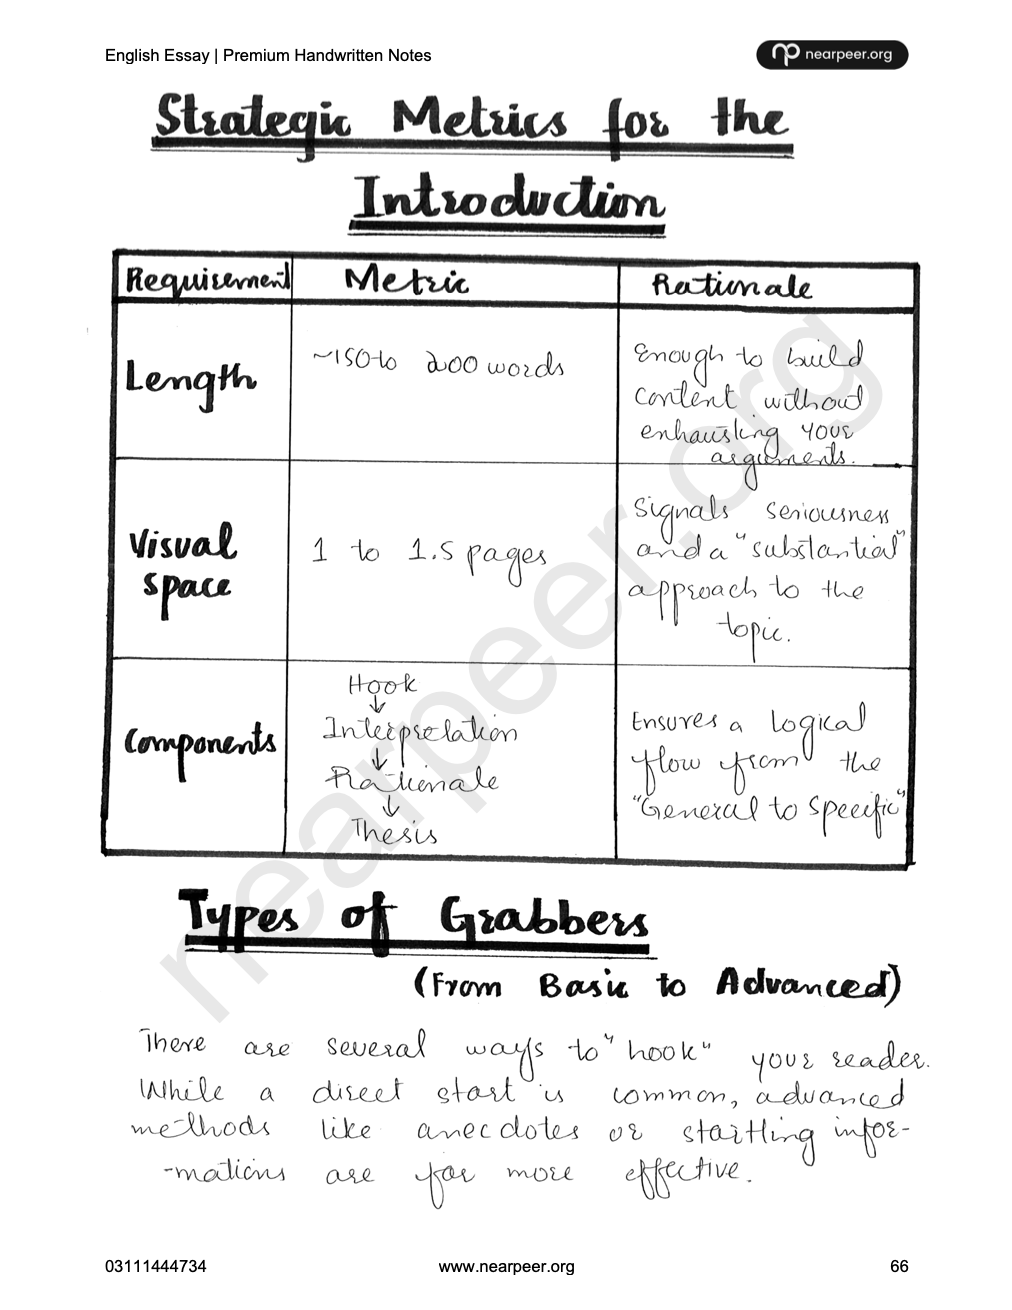 English Essay | Premium Handwritten Notes
nearpeer.org
Strategic Metrics for the
Introduction
Requirement Metric Rationale
Length
~150 to 200 words
Enough to build
content without
enhausting your
arguments.
Visual
space
1 to 1.5 pages
Signals seriousness
and a "substantial"
approach to the
topic.
Components
Hook
↓
Interpretation
↓
Rationale
↓
Thesis
Ensures a logical
flow from the
"General to Specific"
nearpeer.org
Types of Grabbers
(From Basic to Advanced)
There are several ways to "hook" your reader.
While a direct start is common, advanced
methods like anecdotes or startling infor-
-mations are far more effective.
03111444734 www.nearpeer.org 66